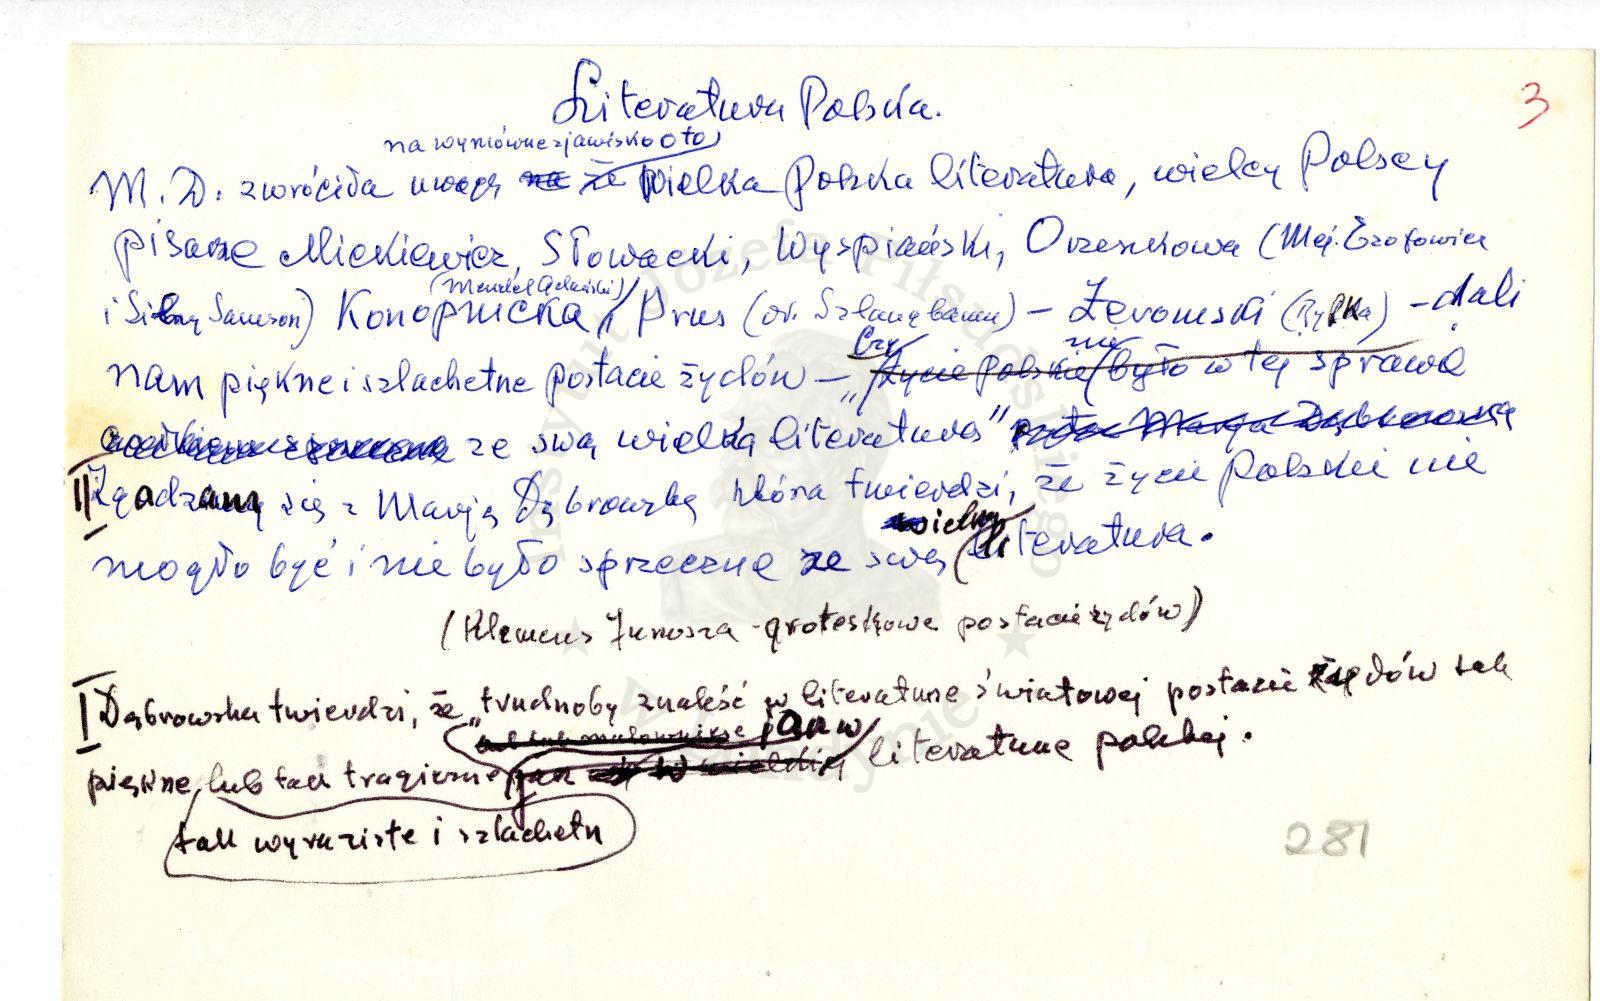 3
Literatura Polska.
na wymówne zjawisko oto
M. D. zwróciła uwagę na że Wielka Polska literatura, wielcy Polscy
pisarze Mickiewicz, Słowacki, Wyspiański, Orzeszkowa (Mej. Ezofowicz
(Mendel Gdański)
i Silny Samson) Konopnicka, Prus (dr. Szlangbaum) – Żeromski (Ryfka) – dali
Czy nie
nam piękne i szlachetne postacie żydów – "życie polskie było w tej sprawie
ze swą wielką literaturą" Marja Dąbrowska
II Zgadzam się z Marją Dąbrowską która twierdzi, że życie Polskie nie
wielką
mogło być i nie było sprzeczne ze swą literaturą.
(Klemens Junosza - groteskowe postacie żydów)
I Dąbrowska twierdzi, że "trudnoby znaleść w literaturze światowej postacie żydów tak
jak w
piękne, lub tak tragiczne jak w wielkiej literaturze polskiej.
tak wyraziste i szlachetn
281
Instytut Józefa Piłsudskiego